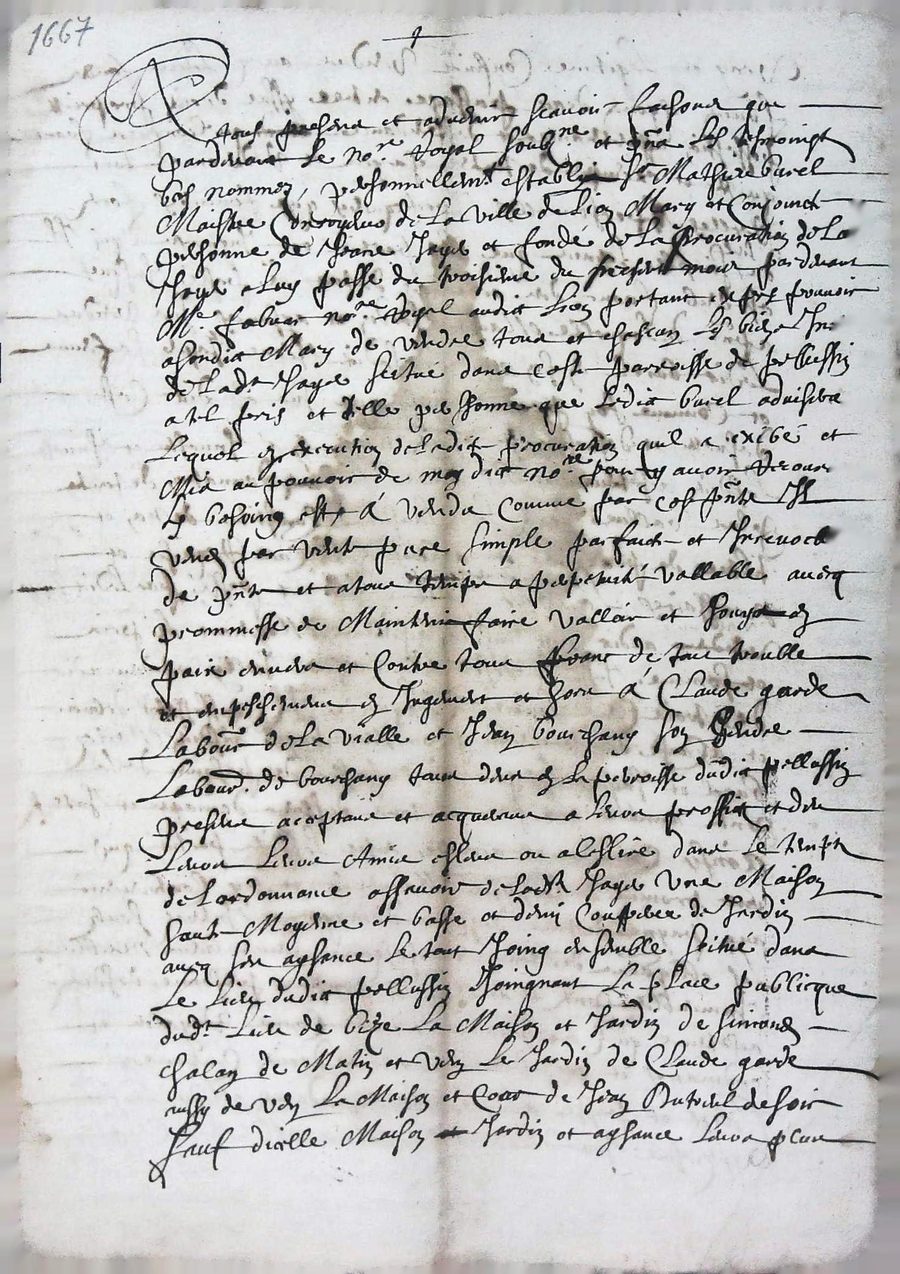 1667
A
tous presens et advenir scavoir faisons que
pardevant le no.re Royal soubz.ne et pn̄s les tesmoingt
bas nommez, personnellemt establi Sr Mathieu burel
Maistre de la ville de Lion Mary et Conjoinct
personne de Jeane Jaye et fondé de La procuration de La
Jaye a luy passé du troisieme du present mois pardevant
Me no.re Royal audit Lion portant expres pouvoir
asondict Mary de vendre tous et chascun Les biens
de Ladt Jaye scitué dans ceste parroisse de pellussin
a tel pris et telle personne que Ledit burel advisera
Lequel en execution deladite procuration quil a exibé et
Mis au pouvoir de moy dict no.re pour y avoir recours
besoing est, a vendu Comme par ces pn̄te Il
vend par vente pure simple parfaicte et Irrevocab
de pn̄te et a tous temps a perpetuité vallable avecq
prommesse de Maintenir faire valloir et Jouyr en
paix envers et Contre tous franc de tout trouble
et empeschement en Jugement et hors a Claude garde
Labour de La vialle et Jean bourchany son gendre
Labour. de bourchany tous deux en La parroisse dudit pellussin
presens acceptans et acquerans a Leurs proffict et des
Leurs Leurs Amis esleus ou a eslire dans Le temps
de Lordonnance assavoir de ladt Jaye une Maison
haute Moyenne et basse et demi Coupperée de Jardin
avecq ses aysance Le tout Joing ensemble scitué dans
Le Lieu dudit pellussin Joingnant La place publicque
dudt Lieu de bize La Maison et Jardin de simond
chalan de Matin et vent Le Jardin de Claude garde
aussy de vent La Maison et Cour de Jean de soir
sauf dicelle Maison Jardin et aysance Leurs plus